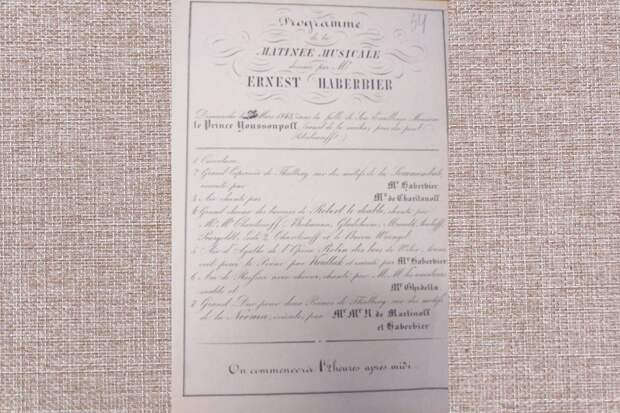 Programme 34
de la
MATINÉE MUSICALE
donnée par Mr
ERNEST HABERBIER
Dimanche Mars dans la salle de Son Excellence Monsieur
le Prince Youssoupoff
1 Ouverture.
2 Grand Caprice de Thalberg sur des motifs de la Somnambule,
exécuté par Mr Haberbier
3 Air chanté par Mr de Charitonoff
4 Grand choeur des buveurs de Robert le diable, chanté par
et le Baron Wrangel
5 Air d'Agathe de l'Opéra Robin des bois de Weber,
pour le Piano par Kullak et exécuté par Mr Haberbier
6 Air de avec choeur, chanté par M. M. les amateurs
et Mr Ghidella
7 Grand Duo pour deux Pianos de Thalberg sur des motifs
de la Norma, exécuté par Mr Mr N. de Martinoff
et Haberbier
On commencera à heures après midi